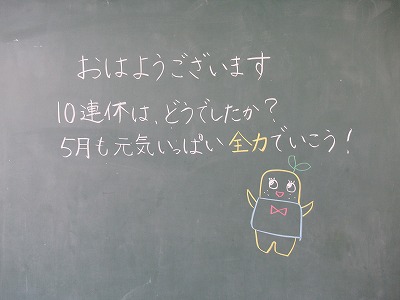 おはようございます
10連休は、どうでしたか？
5月も元気いっぱい全力でいこう！